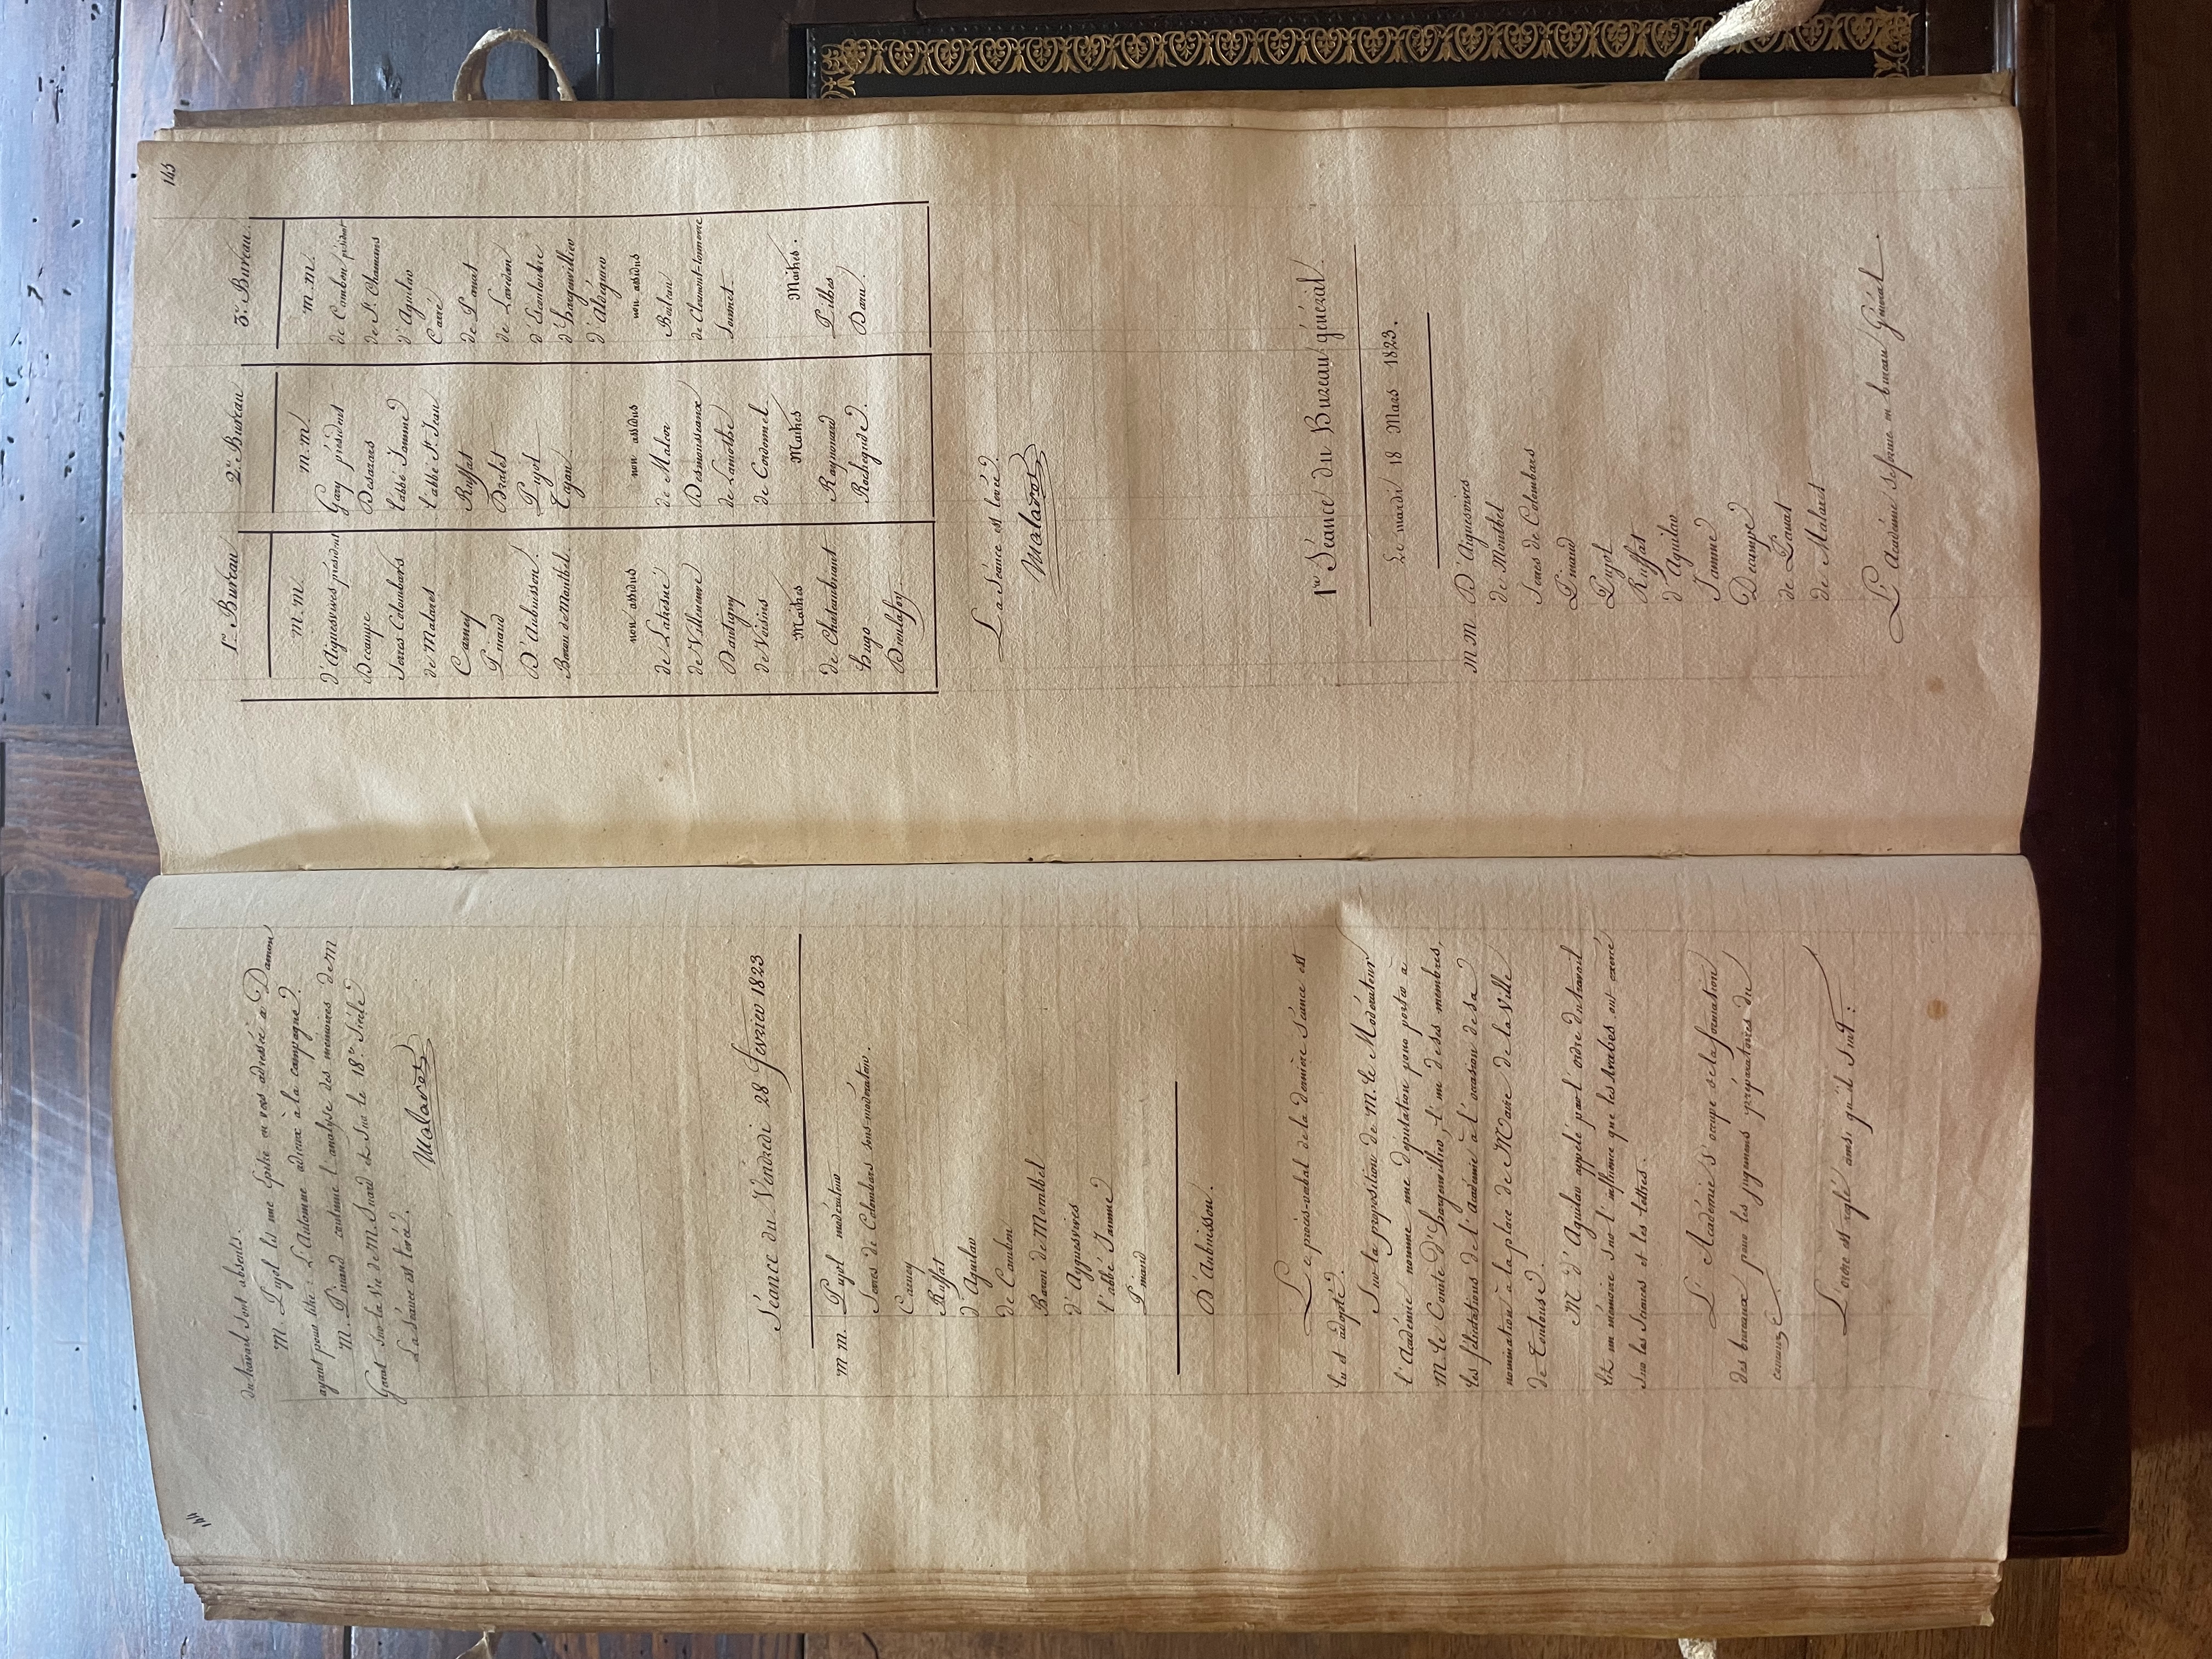 144
du travail sont absents.
M. Pujol lit une Epitre en vers adressée à Damon
ayant pour titre : L'Automne adieux à la campagne.
M. Pinaud continue l'analyse des mémoires de M
Garat sur la Vie de M. Suard et sur le 18e. Siècle.
La séance est levée.
Malaret
Séance du Vendredi 28 fevrier 1823
M M. Pujol modérateur
Serres de Colombars sous-modérateur.
Carney
Ruffat
d'Aguilar
de Cambon
Baron de Montbel
d'Ayguesvives
l'abbé Jamme
Pinaud
D'Aubuisson.
Le procès-verbal de la dernière séance est
lu et adopté.
Sur la proposition de M. le Modérateur
l'Académie nomme une députation pour porter à
M. le Comte d'hargenvillier, l'un de ses membres,
les félicitations de l'académie à l'occasion de sa
nomination à la place de Maire de la Ville
de Toulouse.
M d'Aguilar appelé par l'ordre du travail
lit un mémoire sur l'influence que les Arabes ont exercé
sur les Sciences et les lettres.
L'Académie s'occupe de la formation
des bureaux pour les jugemens préparatoires du
concours.
L'ordre est réglé ainsi qu'il suit :
145
1er. Bureau
m. m.
d'Aiguesvives président
Decampe
Serres Colombars
de Malaret
Carney
Pinaud
D'Aubuisson.
Baron de Montbel.
non assidus
de Latresne
de Villeneuve
Dantigny
de Voisins
Maîtres
de Chateaubriant
hugo
Dieulafoy.
2e. Bureau
m. m.
Gary président
Desazars
l'abbé Jamme
l'abbé St. Jean
Ruffat
Dralet
Pujol
Tajan
non assidus
de Malcor
Desmousseaux
de Lamothe
de Cardonnel.
Maîtres
Raynouard
Rochegude.
3e. Bureau.
m. m.
de Cambon président
de St. Chamans
d'Aguilar
Carré
de Panat
de Lavedan
d'Escouloubre
d'hargenvillier
d'Aldéguier
non assidus
Baslan
de Clermont-tonnerre
Soumet
Maîtres.
Pilhes
Daru.
La Séance est levée.
Malaret
1re Séance du Bureau général.
Le mardi 18 Mars 1823.
M M D'Aiguesvives
de Montbel
Serres de Colombars
Pinaud
Pujol
Ruffat
d'Aguilar
Jamme
Decampe
de Panat
de Malaret
L'Académie se forme en bureau Général.